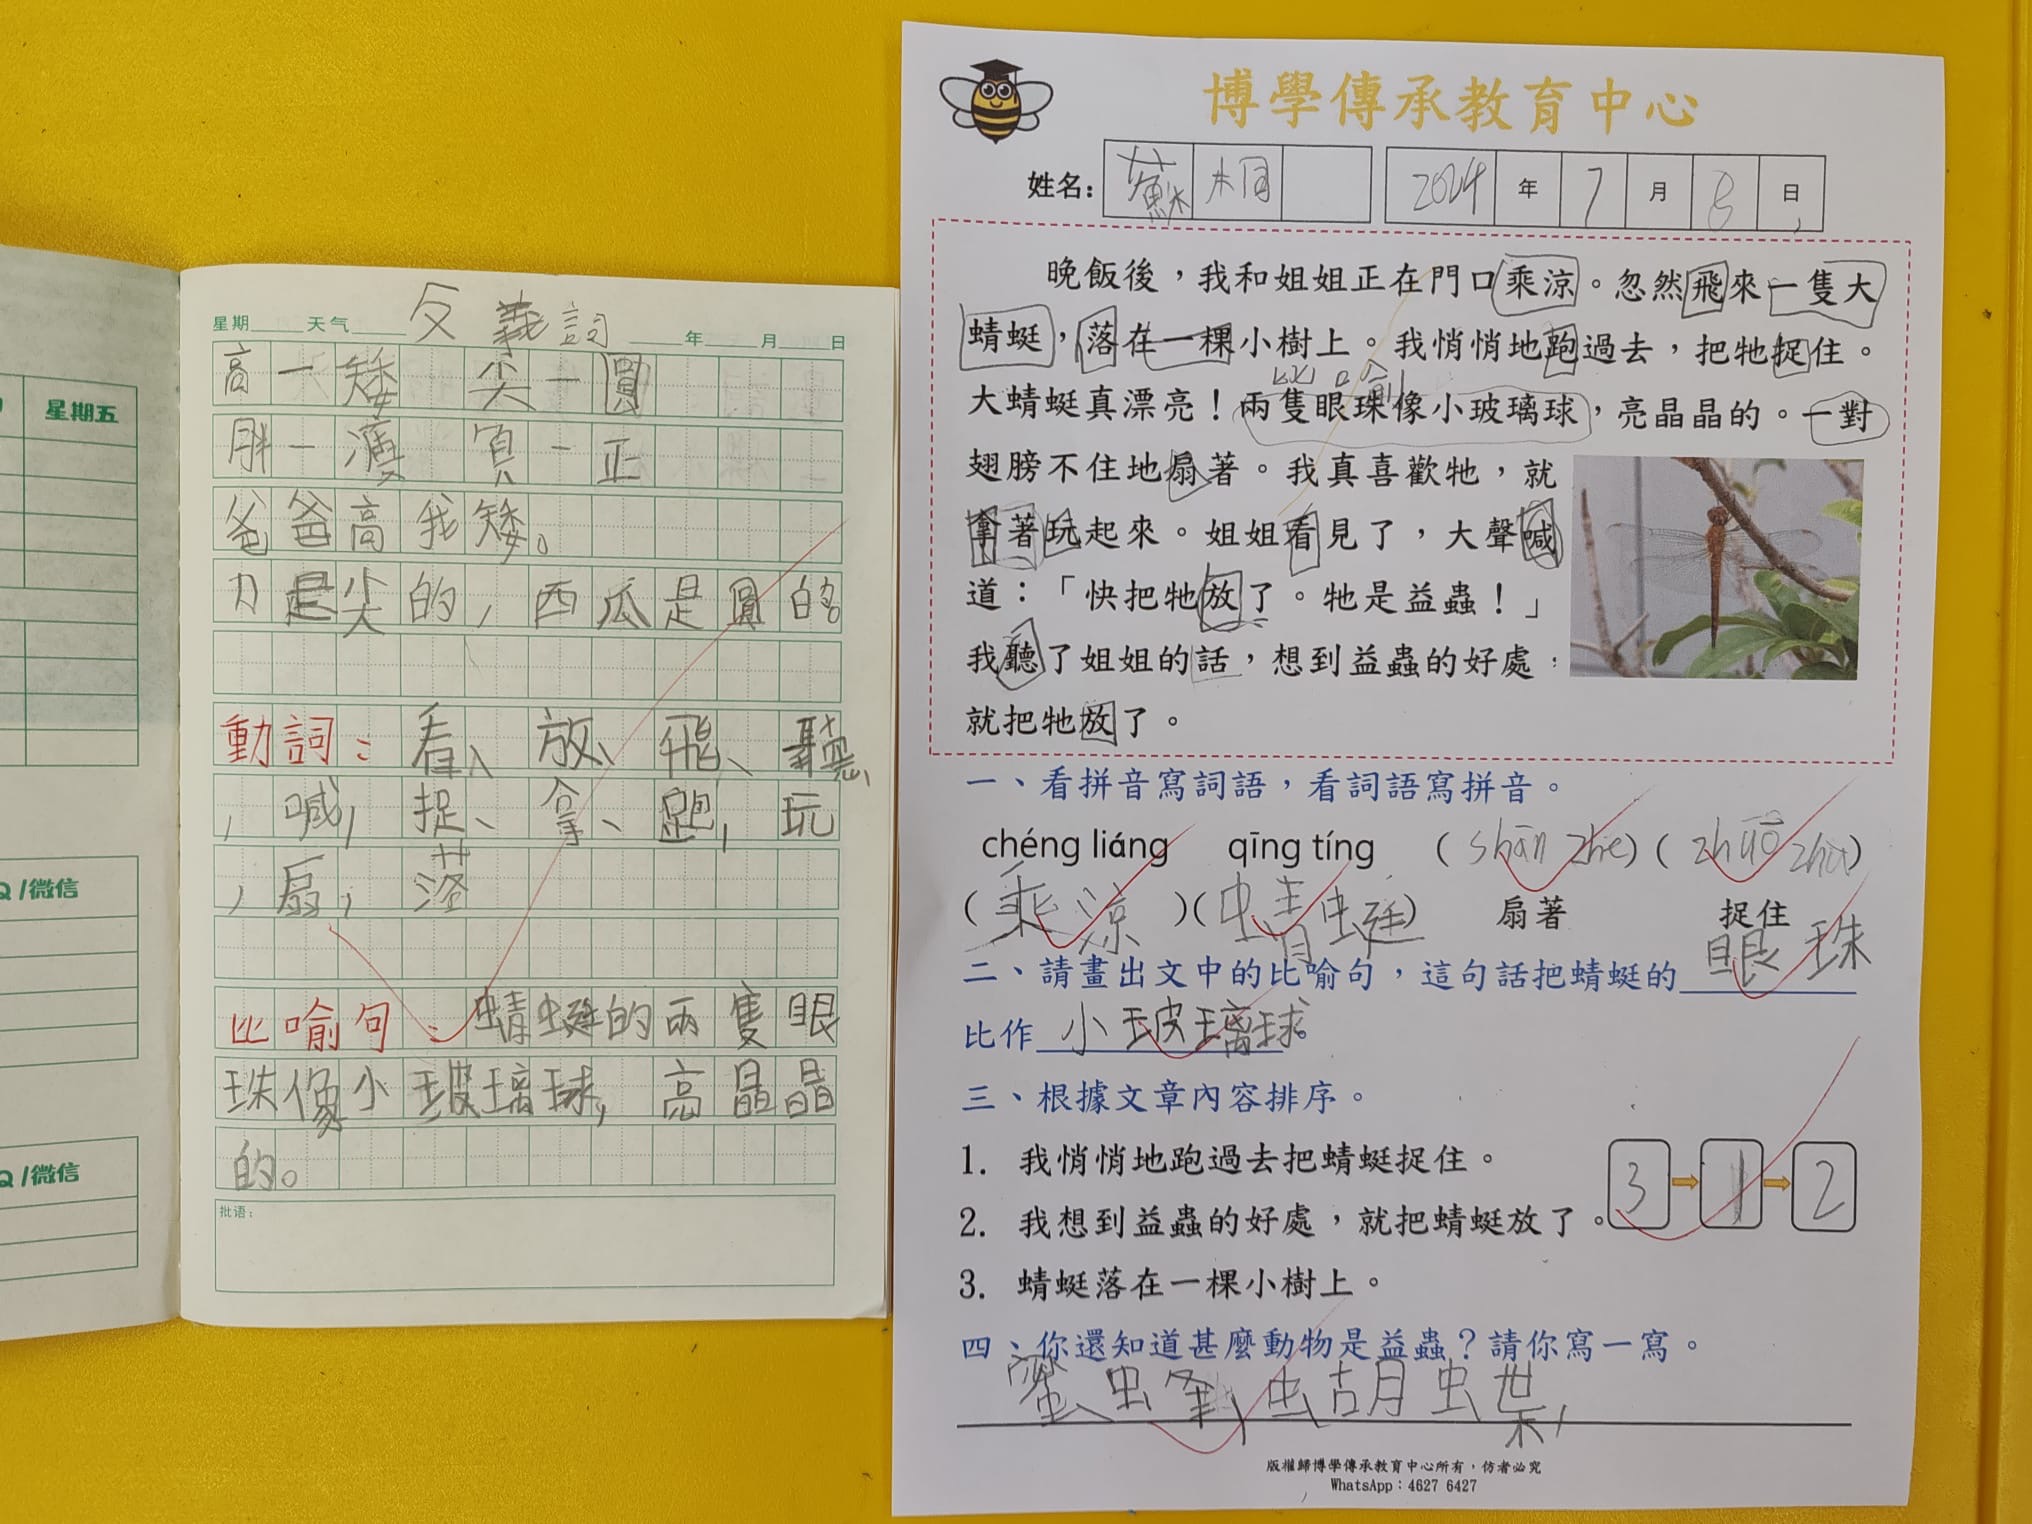 星期五
Q/微信
Q/微信
反義詞
星期 天气 年 月 日
高一矮 尖一圓
胖一瘦 負一正
爸爸高我矮。
刀是尖的，西瓜是圓的。
動詞：看、放、飛、聽
，喊，捉、拿、跑，玩
，扇，落
比喻句：蜻蜓的兩隻眼
珠像小玻璃球，亮晶晶
的。
批语：
博學傳承教育中心
姓名： 蘇桐 2024 年 7 月 8 日
晚飯後，我和姐姐正在門口乘涼。忽然飛來一隻大
蜻蜓，落在一棵小樹上。我悄悄地跑過去，把牠捉住。
大蜻蜓真漂亮！兩隻眼珠像小玻璃球，亮晶晶的。一對
翅膀不住地扇著。我真喜歡牠，就
拿著玩起來。姐姐看見了，大聲喊
道：「快把牠放了。牠是益蟲！」
我聽了姐姐的話，想到益蟲的好處，
就把牠放了。
一、看拼音寫詞語，看詞語寫拼音。
chéng liáng qīng tíng （shān zhe）（zhuō zhu）
（乘涼）（蜻蜓） 扇著 捉住
二、請畫出文中的比喻句，這句話把蜻蜓的 眼珠
比作 小玻璃球。
三、根據文章內容排序。
1. 我悄悄地跑過去把蜻蜓捉住。
3 → 1 → 2
2. 我想到益蟲的好處，就把蜻蜓放了。
3. 蜻蜓落在一棵小樹上。
四、你還知道甚麼動物是益蟲？請你寫一寫。
蜜蜂，蝴蝶，
版權歸博學傳承教育中心所有，仿者必究
WhatsApp：4627 6427